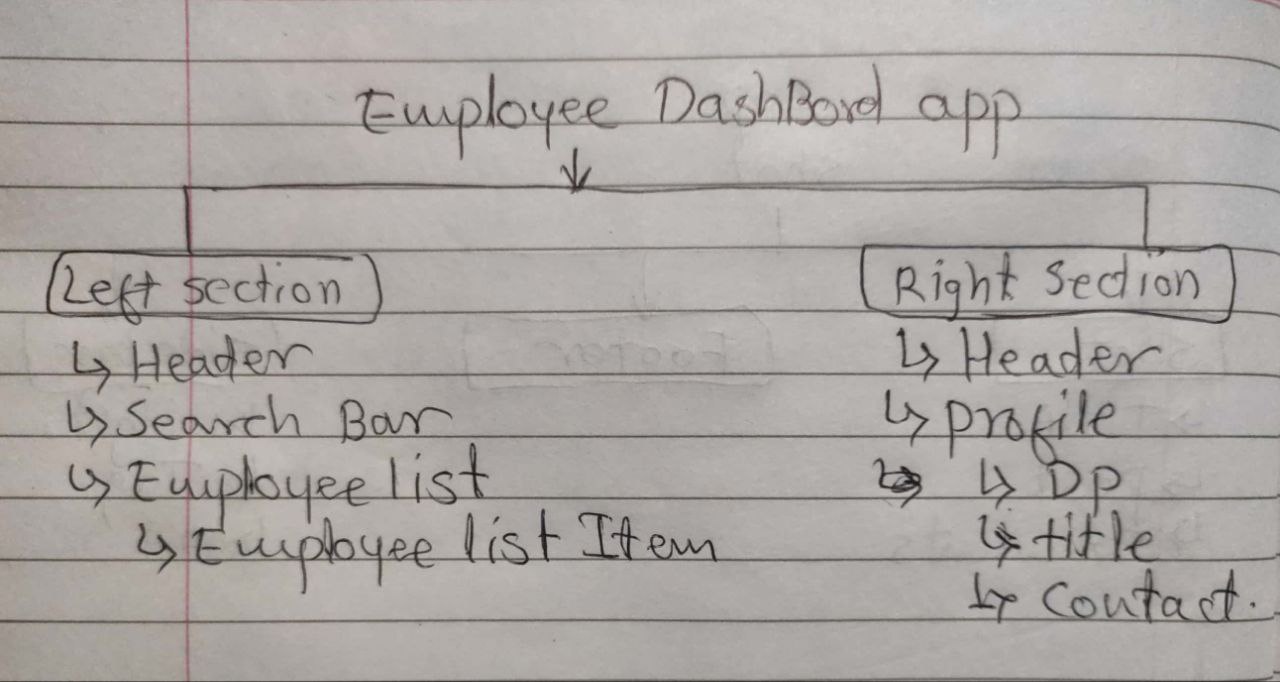 Employee DashBord app
Left section
Header
Search Bar
Employee list
Employee list Item
Right Section
Header
profile
Dp
title
Contact.